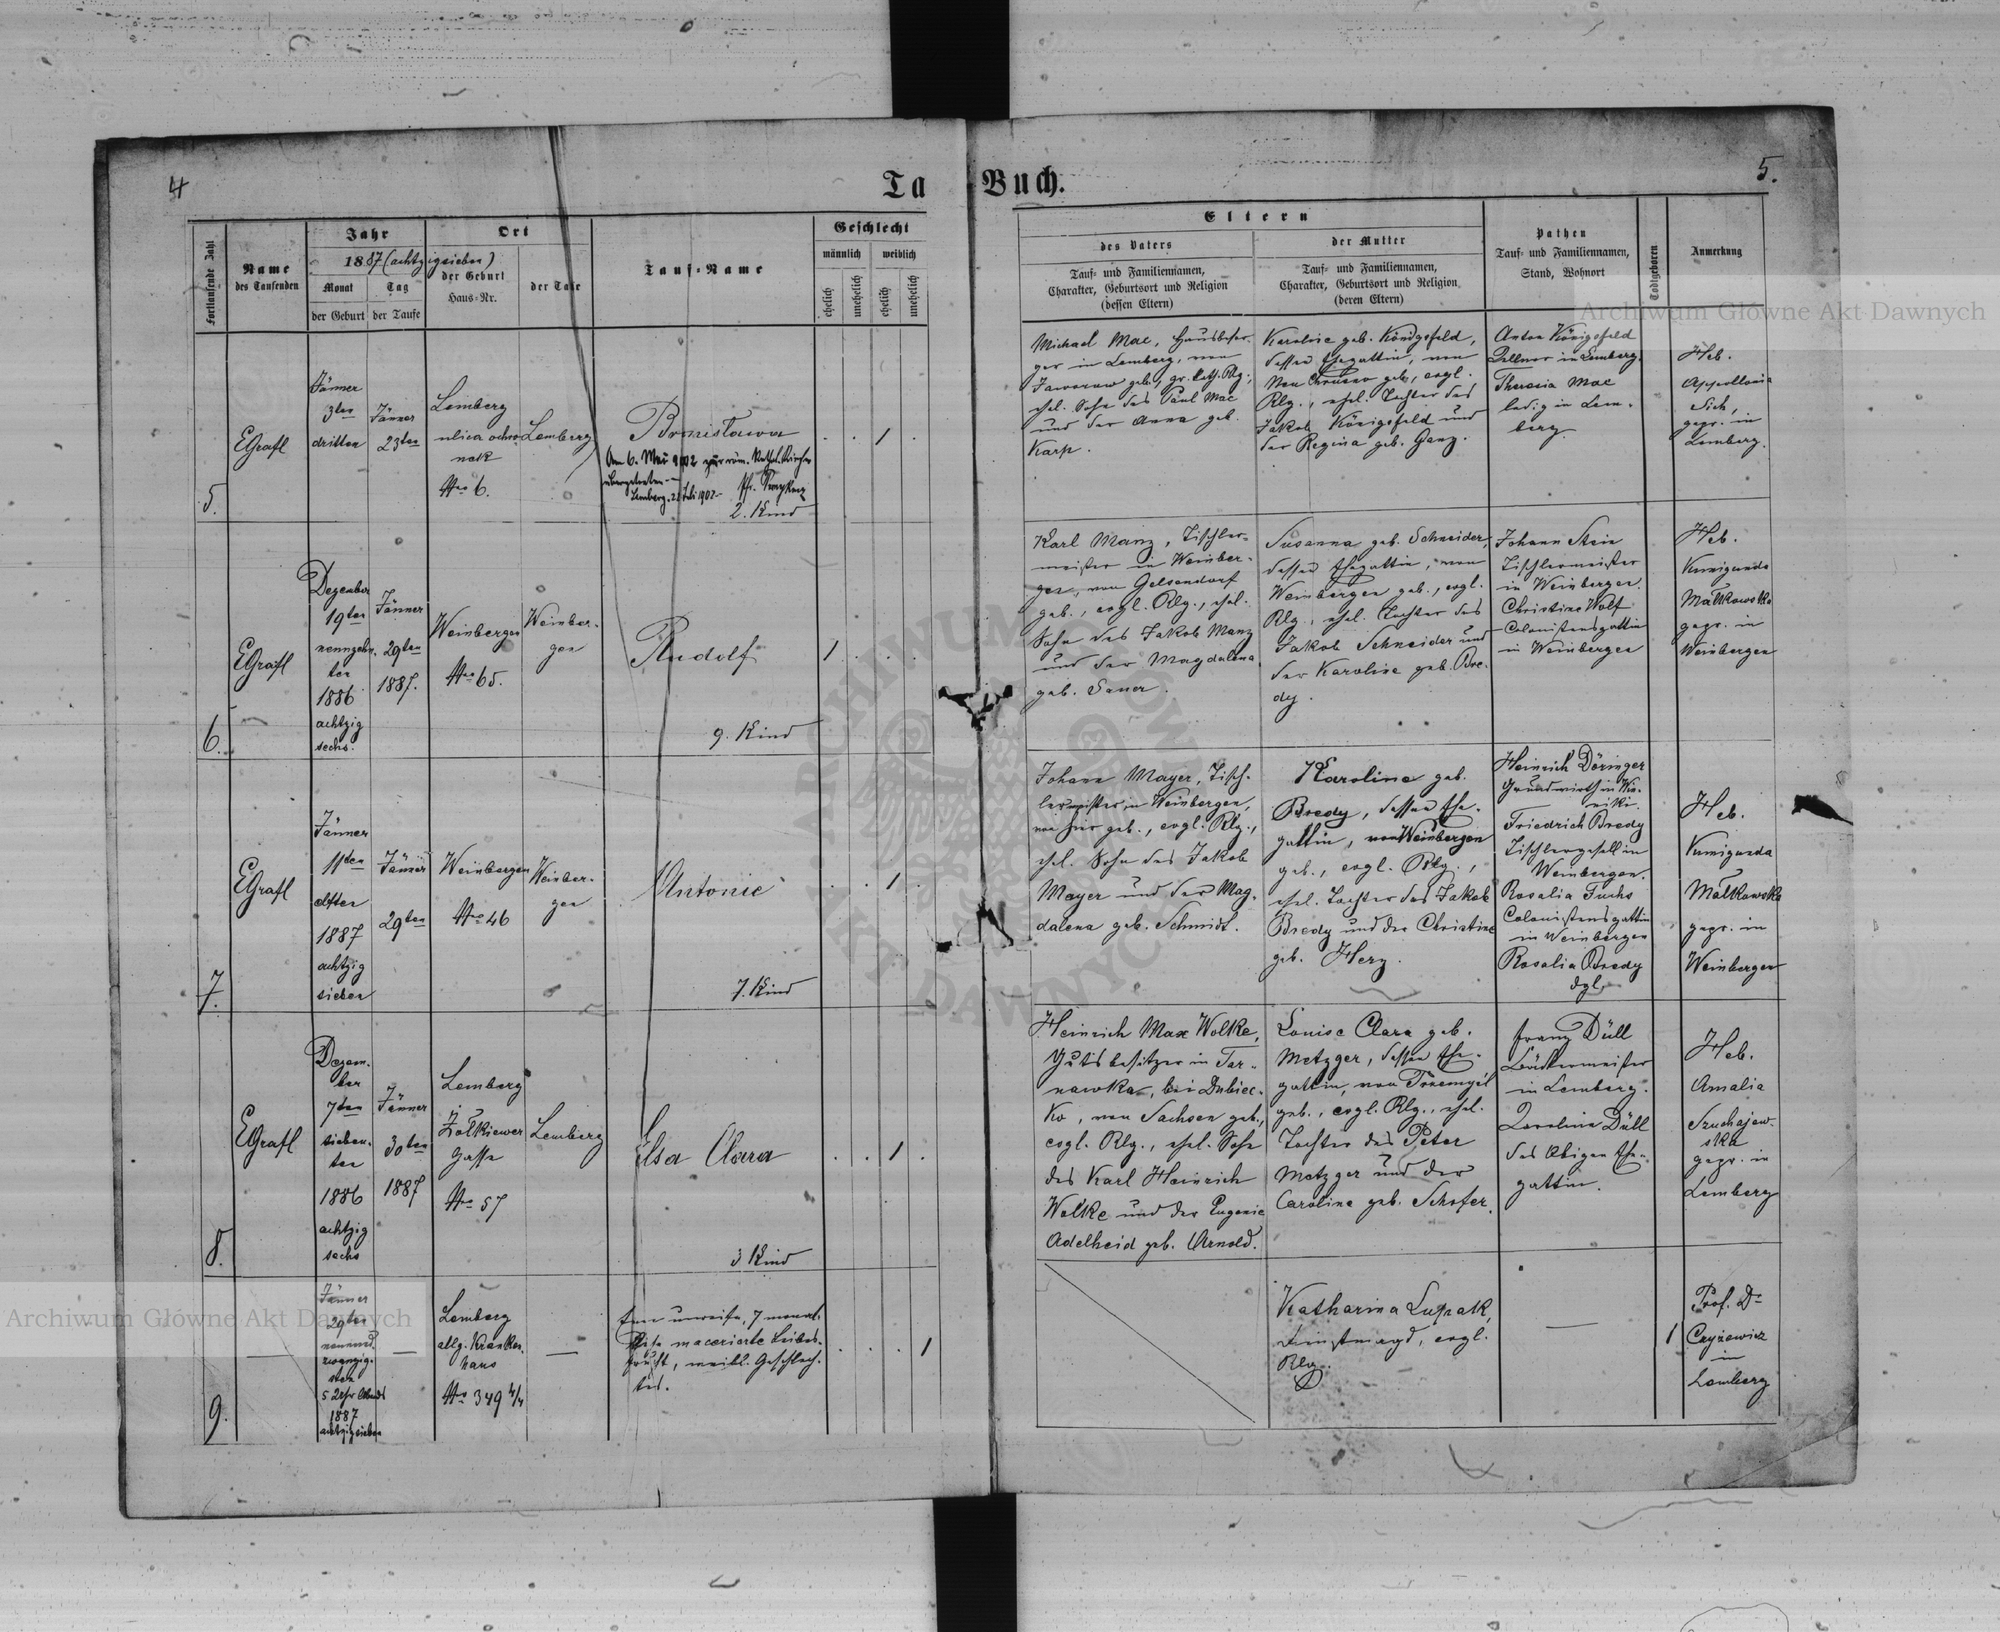 4
Ta
Buch.
5.
Fortlaufende Zahl
Name
des Taufenden
Jahr
1887 (achtzigsieben)
Monat
der Geburt
Tag
der Taufe
Ort
der Geburt
Haus-Nr.
der Taufe
Tauf-Name
Geschlecht
männlich
weiblich
ehelich
unehelich
ehelich
unehelich
Eltern
des Vaters
Tauf- und Familiennamen,
Charakter, Geburtsort und Religion
(dessen Eltern)
der Mutter
Tauf- und Familiennamen,
Charakter, Geburtsort und Religion
(deren Eltern)
Pathen
Tauf- und Familiennamen,
Stand, Wohnort
Todtgeboren
Anmerkung
5.
EGrafl
Jänner
3ten
dritten
Jänner
23ten
Lemberg
ulica
Nro 6.
Lemberg
Bronisława
Am 6. Mai 1902 zur röm. kathol. Kirche
übergetreten
Lemberg, 2 Juli 1902
2. Kind
1
Michael Mac, Hausbesor-
ger in Lemberg, von
Jaworow geb., gr. kath. Rlg.,
ehel. Sohn des Paul Mac
und der Anna geb.
Karp.
Karoline geb. Königsfeld,
dessen Ehegattin, von
Neu geb., evgl.
Rlg., ehel. Tochter des
Jakob Königsfeld und
der Regina geb. Ganz.
Anton Königsfeld
in Lemberg.
Theresia Mac
ledig in Lem-
berg.
Heb.
Appollonia
Sich,
gepr. in
Lemberg.
6.
EGrafl
Dezember
19ten
neunzehn-
ten
1886
achtzig
sechs.
Jänner
29ten
1887.
Weinbergen
Nro 65.
Weinber-
gen
Rudolf
9. Kind
1
Karl Manz, Tischler-
meister in Weinber-
gen, von Gelsendorf
geb., evgl. Rlg., ehel.
Sohn des Jakob Manz
und der Magdalena
geb. Sauer.
Susanna geb. Schneider,
dessen Ehegattin, von
Weinbergen geb., evgl.
Rlg., ehel. Tochter des
Jakob Schneider und
der Karoline geb. Bre-
dy.
Johann Stein
Tischlermeister
in Weinbergen.
Christine Wolf
Colonistensgattin
in Weinbergen
Heb.
Kunigunda
Małkowska
gepr. in
Weinbergen
7.
EGrafl
Jänner
11ten
elften
1887
achtzig
sieben
Jänner
29ten
Weinbergen
Nro 46
Weinber-
gen
Antonie
7. Kind
1
Johann Mayer, Tisch-
lermeister, in Weinbergen,
von hier geb., evgl. Rlg.,
ehel. Sohn des Jakob
Mayer und der Mag-
dalena geb. Schmidt.
Karoline geb.
Bredy, dessen Ehe-
gattin, von Weinbergen
geb., evgl. Rlg.,
ehel. Tochter des Jakob
Bredy und der Christine
geb. Herz.
Heinrich Döringer
Grundwirth in Wi-
niki.
Friedrich Bredy
Tischlergesell in
Weinbergen.
Rosalia Fuchs
Colonistensgattin
in Weinbergen
Rosalia Bredy
dgl.
Heb.
Kunigunda
Małkowska
gepr. in
Weinbergen
8.
EGrafl
Dezem-
ber
7ten
sieben-
ten
1886
achtzig
sechs
Jänner
30ten
1887
Lemberg
Żołkiewer
Gasse
Nro 57
Lemberg
Elsa Clara
3 Kind
1
Heinrich Max Wolke,
Gutsbesitzer in Tar-
nawka, bei Dubiec-
ko, von Sachsen geb.,
evgl. Rlg., ehel. Sohn
des Karl Heinrich
Wolke und der Eugenie
Adelheid geb. Arnold.
Louise Clara geb.
Metzger, dessen Ehe-
gattin, von Przemyśl
geb., evgl. Rlg., ehel.
Tochter des Peter
Metzger und der
Caroline geb. Schofer.
Franz Düll
Bäckermeister
in Lemberg.
Karolina Düll
des Obigen Ehe-
gattin.
Heb.
Amalia
Szuchajew-
ska
gepr. in
Lemberg
9.
Jänner
29ten
neunund
zwanzig-
sten
5 Uhr Abends
1887
achtzigsieben
Lemberg
allg. Kranken-
haus
Nro 349 4/4
Eine unreife, 7 monat-
liche macerirte Leibes-
frucht, weibl. Geschlech-
tes.
1
Katharina Łupak,
Dienstmagd, evgl.
Rlg.
1
Prof. Dr
Czyżewicz
in
Lemberg
Archiwum Główne Akt Dawnych
Archiwum Główne Akt Dawnych
ARCHIWUM
GŁÓWNE
AKT
DAWNYCH